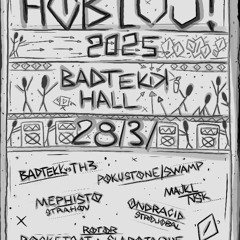 HOBLUJ!
2025
BADTEKK
HALL
28/3/
BADTEKK TH3
POKUSTONE/SWAMP
MEPHISTO
STRAHOV
MAJKL
NSK
ONDRACID
ROTOR